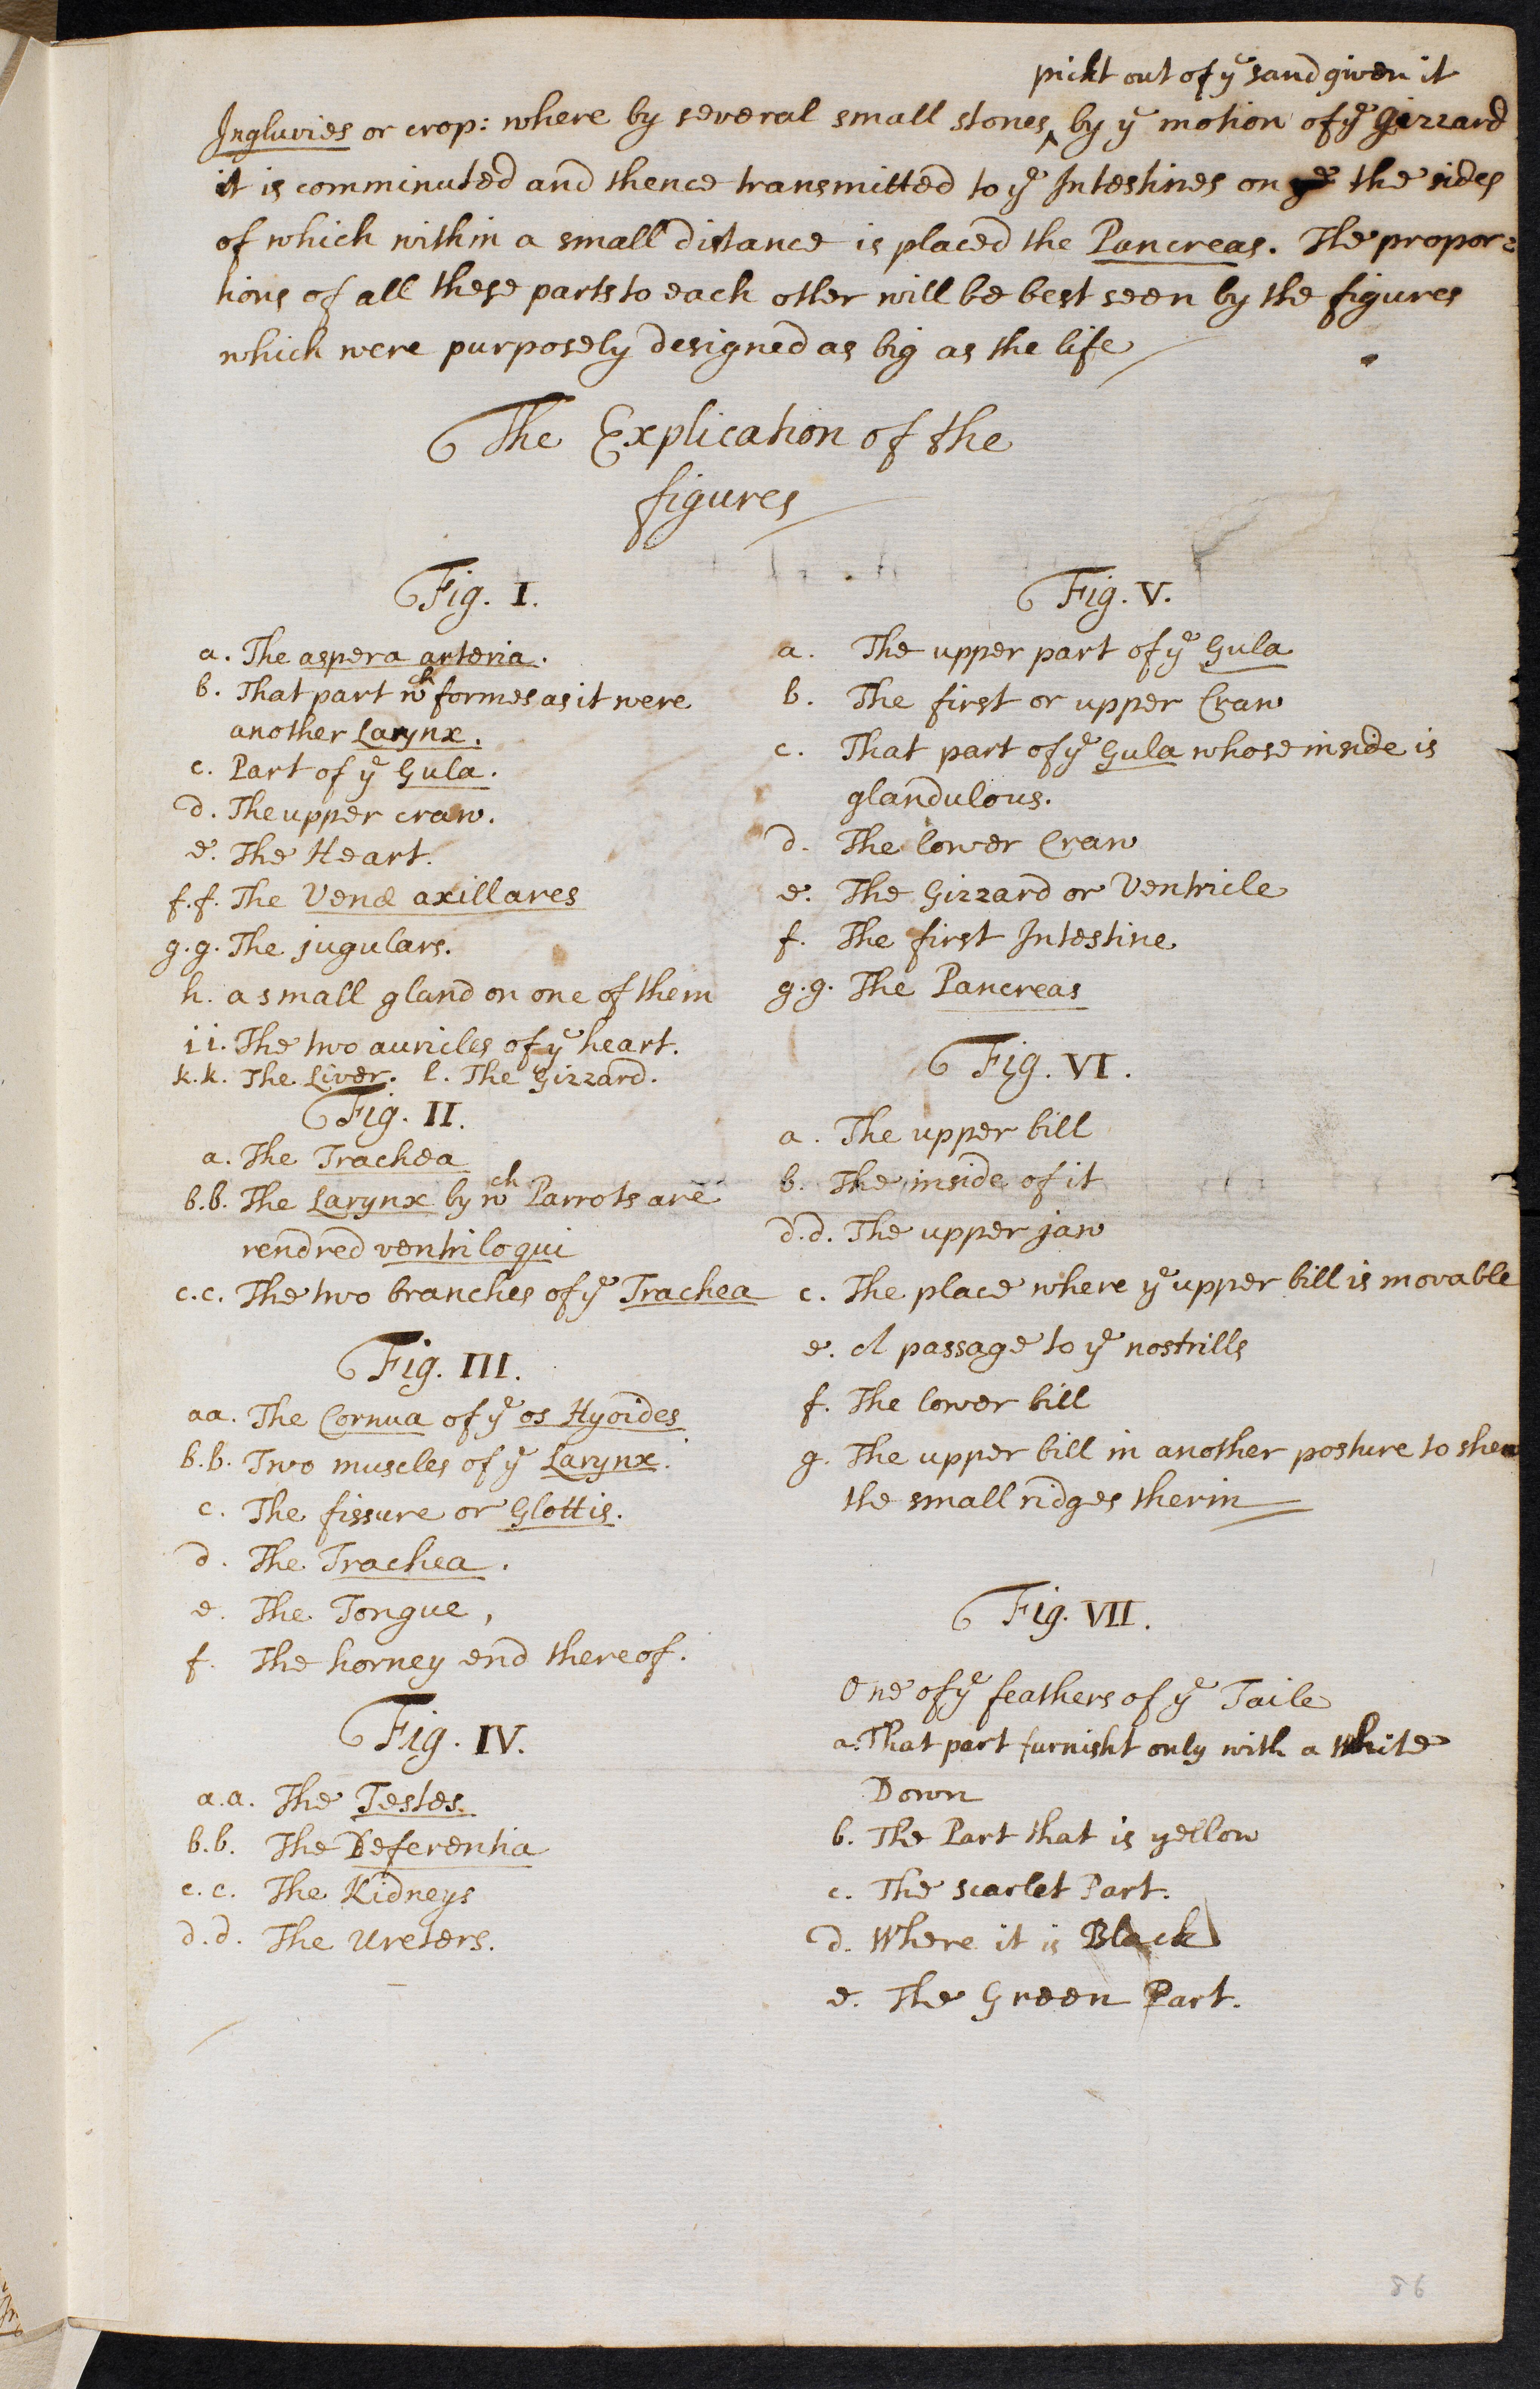 pickt out of yᵉ sand given it
Ingluvies or crop: where by several small stones ‸ by yᵉ motion of yᵉ Gizzard
it is comminuted and thence transmitted to yᵉ Intestines on the sides
of which within a small distance is placed the Pancreas. The propor=
tions of all these parts to each other will be best seen by the figures
which were purposely designed as big as the life
The Explication of the
figures
Fig. I.
a. The aspera arteria.
b. That part wᶜʰ formes as it were
another Larynx.
c. Part of yᵉ Gula.
d. The upper craw.
e. The Heart.
f.f. The Venæ axillares
g.g. The jugulars.
h. a small gland on one of them
i i. The two auricles of yᵉ heart.
k.k. The Liver. l. The Gizzard.
Fig. II.
a. The Trachea
b.b. The Larynx by wᶜʰ Parrots are
rendred ventriloqui
c.c. The two branches of yᵉ Trachea
Fig. III.
aa. The Cornua of yᵉ os Hyoides
b.b. Two muscles of yᵉ Larynx.
c. The fissure or Glottis.
d. The Trachea.
e. The Tongue,
f. The horney end thereof.
Fig. IV.
a.a. The Testes.
b.b. The Deferentia
c.c. The Kidneys
d.d. The Ureters.
Fig. V.
a. The upper part of yᵉ Gula
b. The first or upper Craw
c. That part of yᵉ Gula whose inside is
glandulous.
d. The lower Craw
e. The Gizzard or Ventricle
f. The first Intestine
g.g. The Pancreas
Fig. VI.
a. The upper bill
b. The inside of it
d.d. The upper jaw
c. The place where yᵉ upper bill is movable
e. A passage to yᵉ nostrills
f. The lower bill
g. The upper bill in another posture to shew
the small ridges therin
Fig. VII.
One of yᵉ feathers of yᵉ Taile
a. That part furnisht only with a White
Down
b. The Part that is yellow
c. The scarlet Part.
d. Where it is Black
e. The Green Part.
86